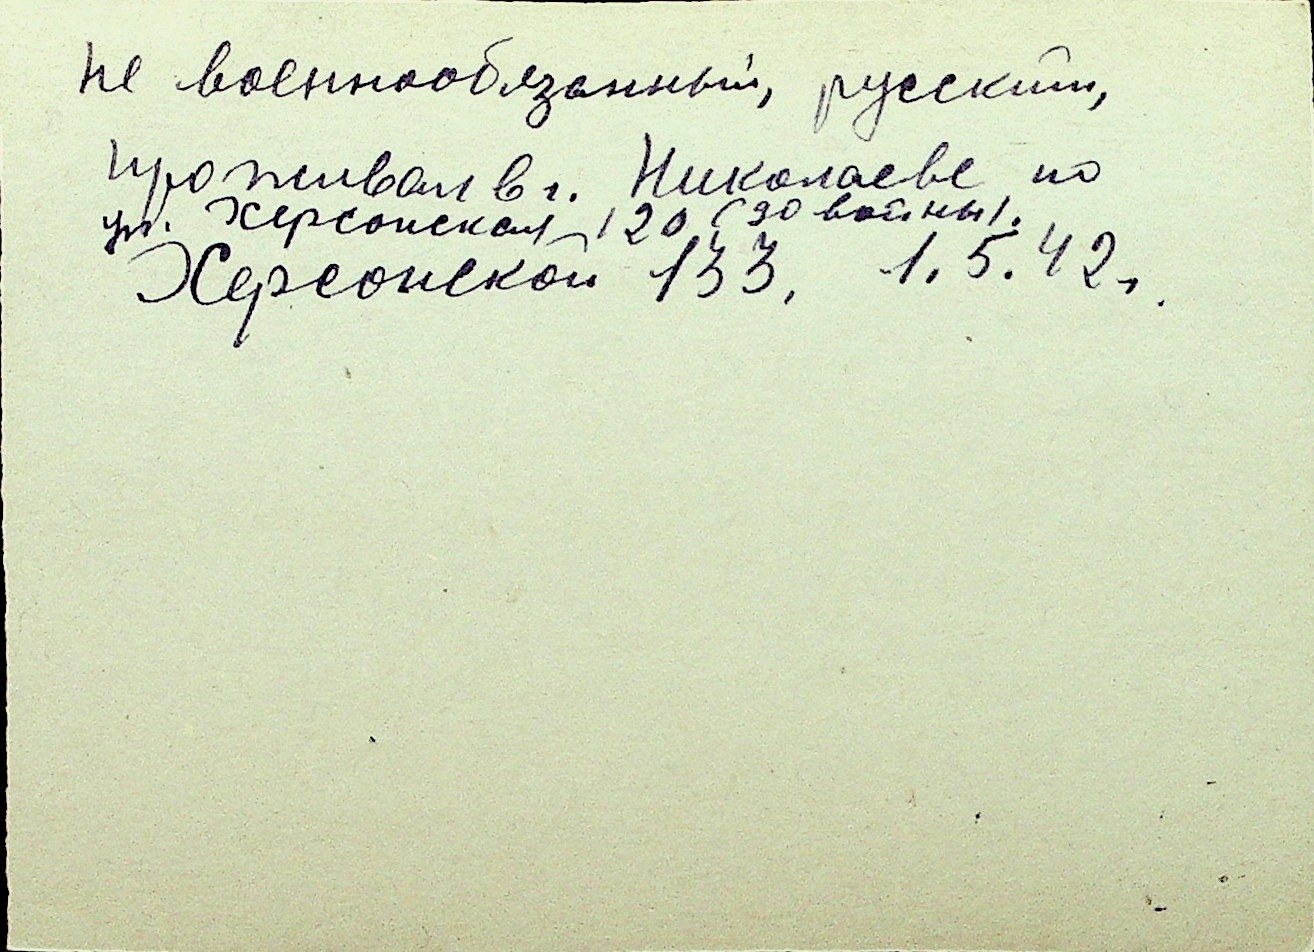 не военнообязанный, русский,
проживал в г. Николаеве по
ул. Херсонская 120 (до войны).
Херсонской 133, 1.5.42 г.